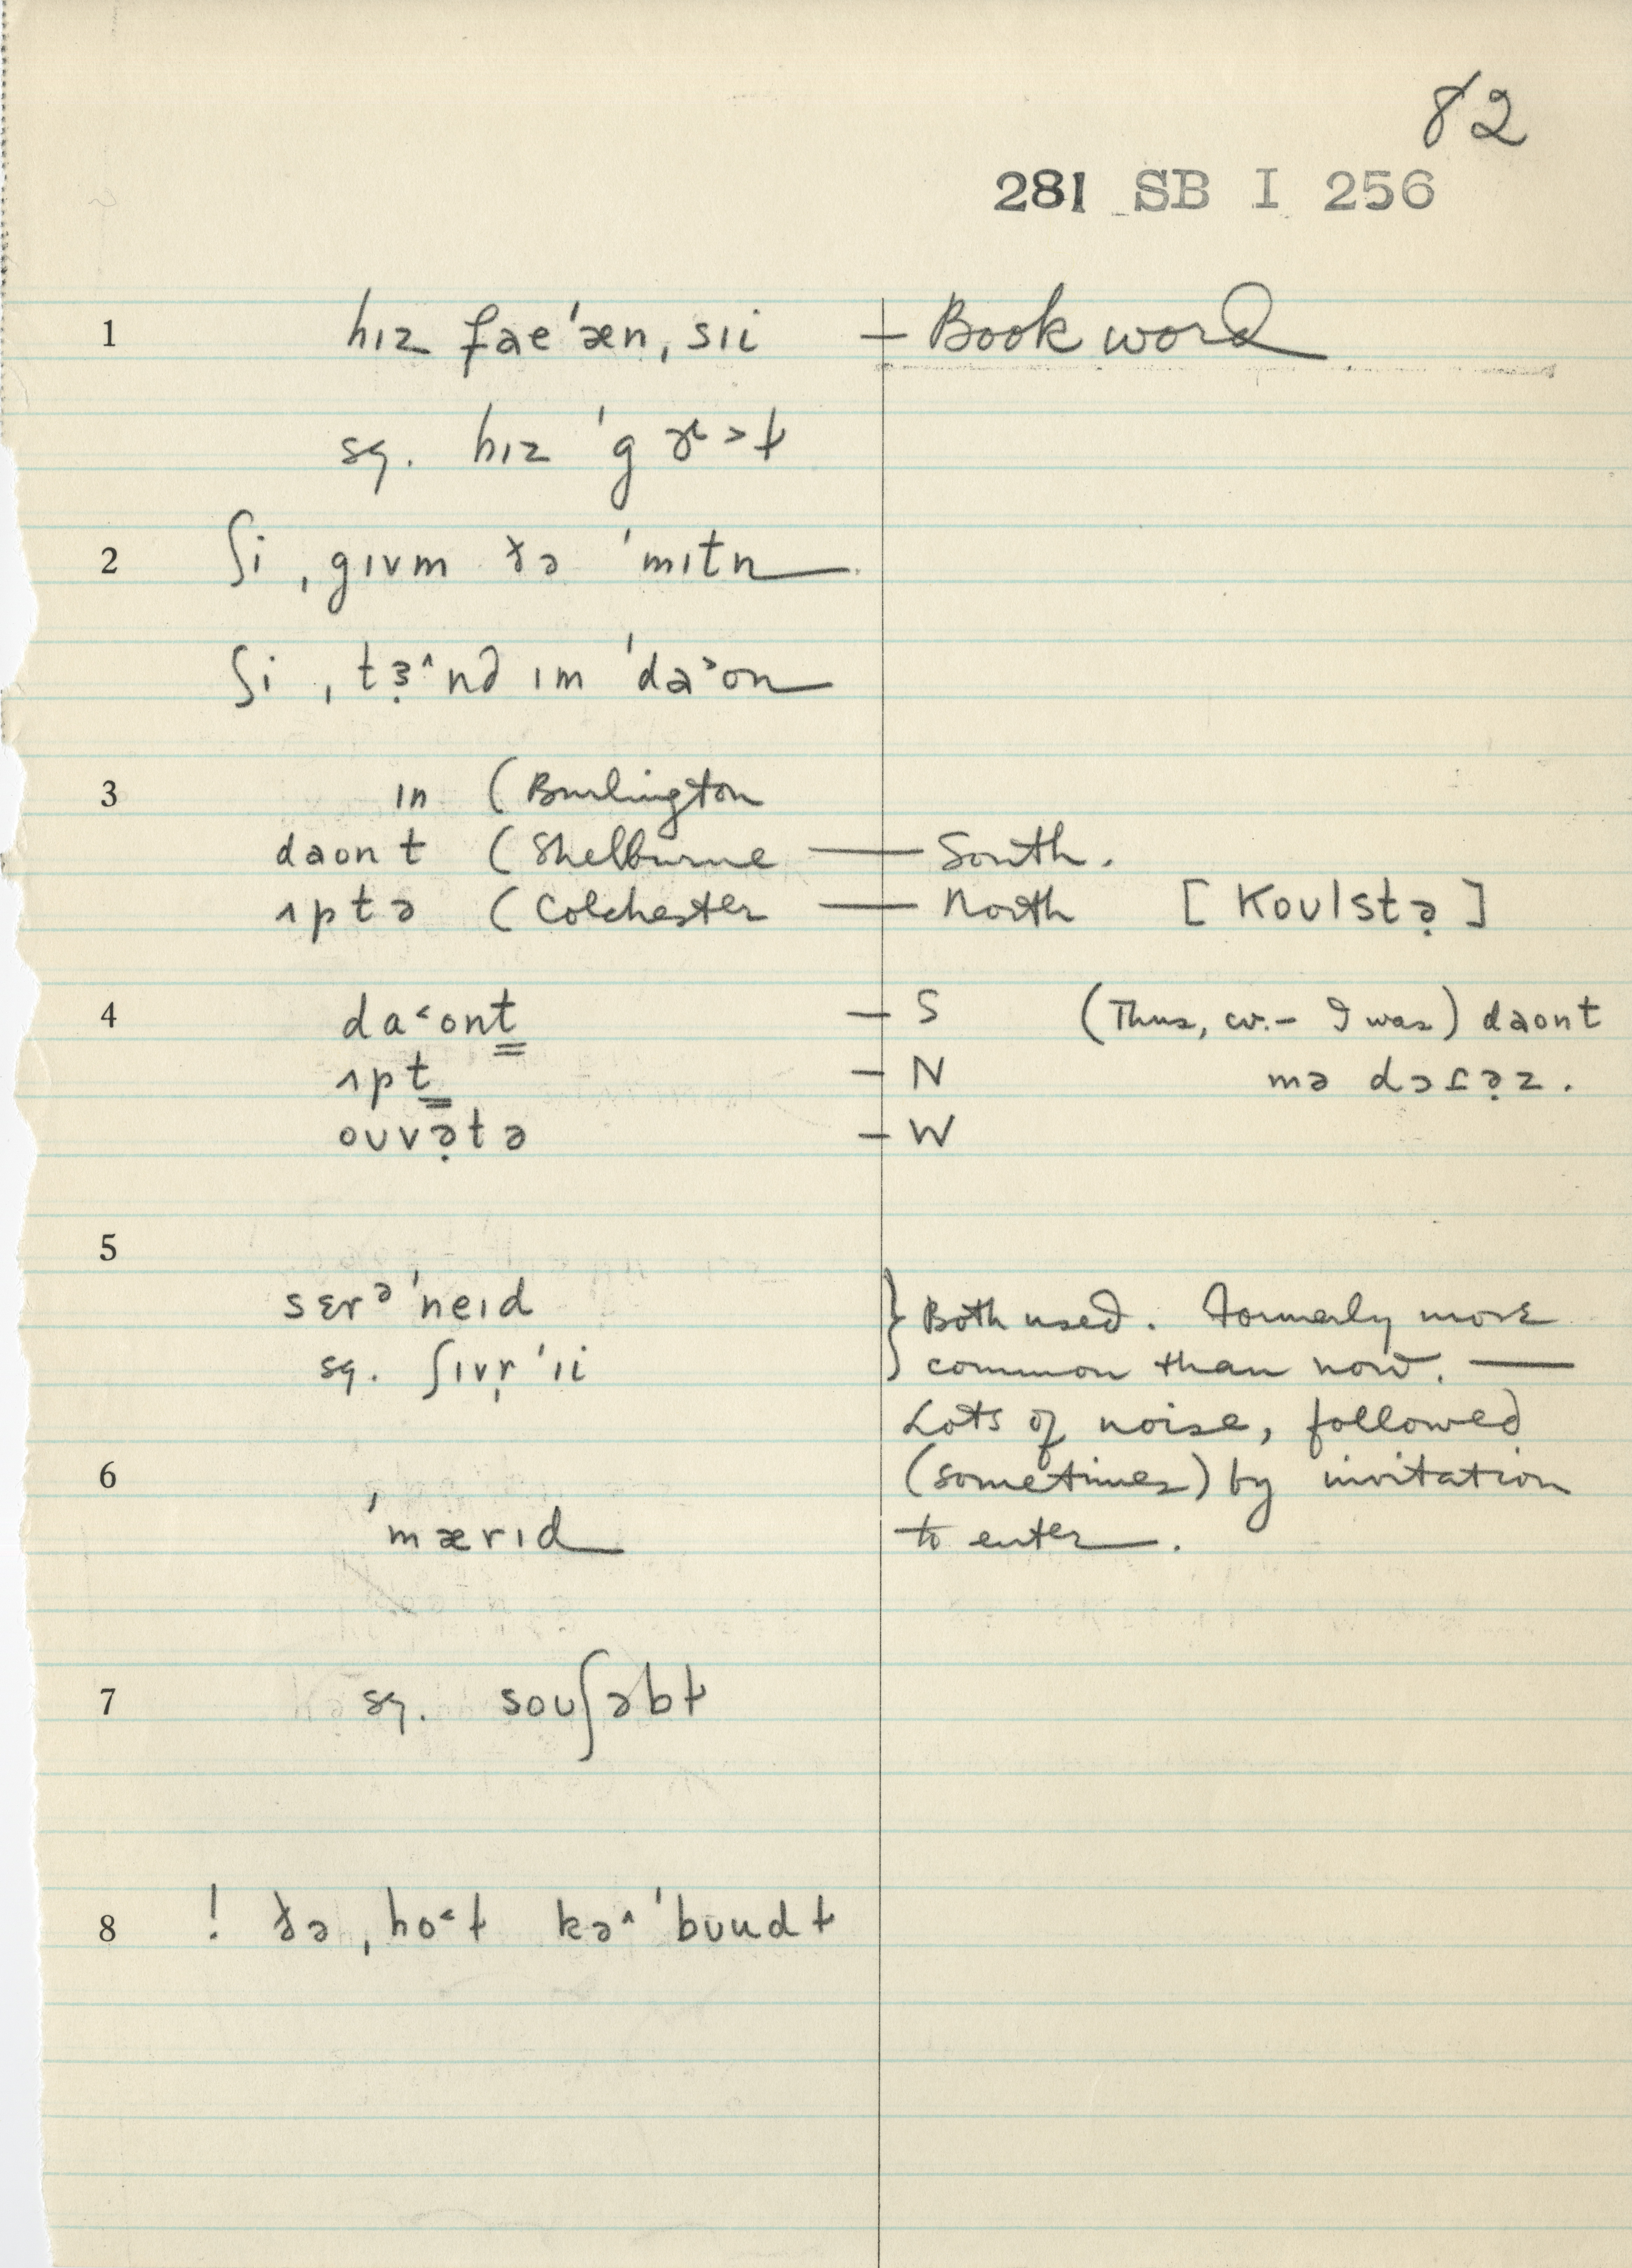 82
281 SB I 256
1 hɪz fae'æn,sɪi — Book word
sq. hɪz 'g
2 ʃi ,gɪvm ðə 'mɪtn
ʃi ,tɜ̣^nd ɪm 'da˃on
3 ɪn (Burlington
daon t (Shelburne — South.
ʌp t ə (Colchester — North [Koʊlstə̣]
4 da˂ont — S (Thus, cv. – I was) daont
ʌpt — N mə dɔtə̣z.
oʊvə̣tə — W
5
sɛrᵊ'neɪd } Both used. Formerly more
sq. ʃɪvṛ'ɪi common than now. —
Lots of noise, followed
6 (sometimes) by invitation
'mærɪd to enter.
7 sq. soʊʃəbɫ
8 ! ðə ,ho˂ɫ kə^'bʊudɫ